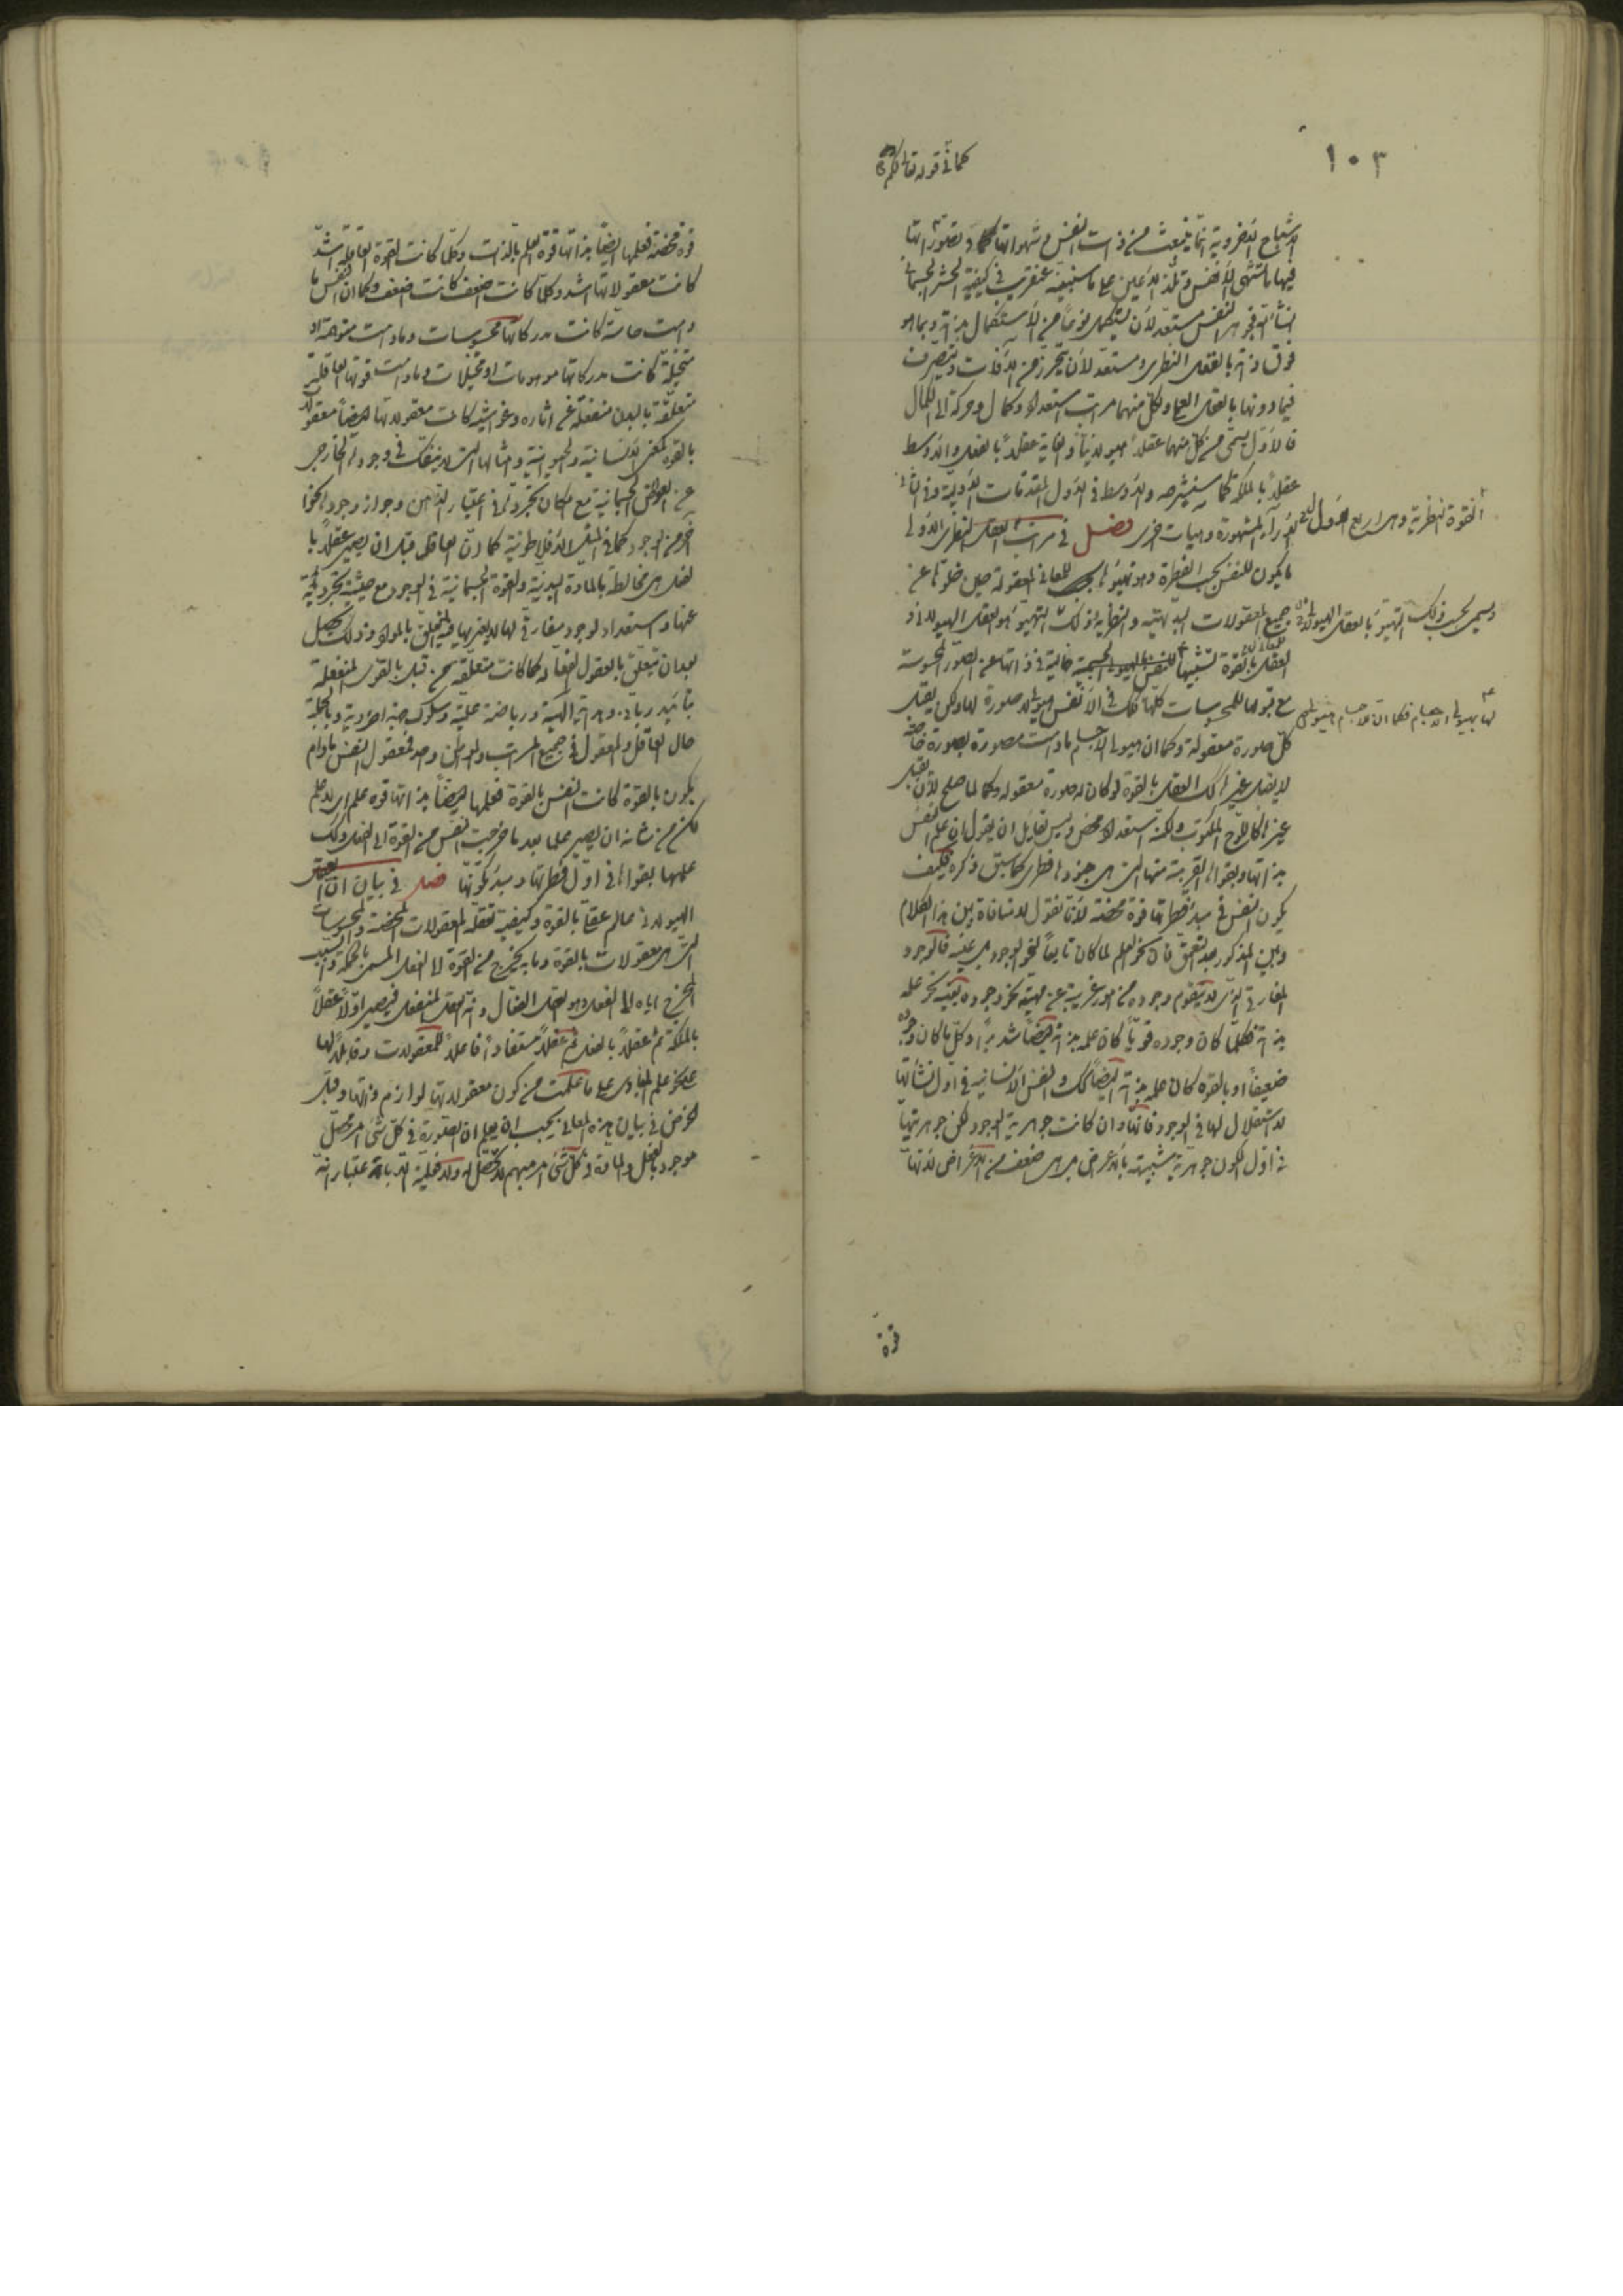 ١٠٣
كما في قوله تعالى
الاشباح الاخروية انما ينبعث من ذات النفس وشهواتها وتصوراتها
فيها ما تشتهي الانفس وتلذ الاعين على ما سنبينه عنقريب في كيفية الحشر الجسماني
فجوهر النفس مستعد لان يستكمل نوعا من الاستكمال بذاته وبما هو
فوق ذاته بالعقل النظري ومستعد لان يتحرز من الآفات ويتصرف
فيما دونها بالعقل العملي ولكل منهما مراتب استعداد وكمال وحركة الى الكمال
فالاول يسمى من كل منهما عقلا هيولانيا والغاية عقلا بالفعل والاوسط
عقلا بالملكة كما سنشرحه والاوسط في الاول المقدمات الاولية وفي الثاني
الآراء المشهورة وهيآت اخرى فصل في مراتب العقل النظري الاولى
القوة النظرية وهي اربع
ما يكون للنفس بحسب الفطرة وهو تهيؤها للمعاني المعقولة حين خلوها عن
جميع المعقولات البديهية والنظرية وذلك التهيؤ هو العقل الهيولاني و
ويسمى بحسب ذلك التهيؤ بالعقل الهيولاني
العقل بالقوة تشبيها للنفس بالهيولى الجسمية خالية في ذاتها عن الصور المحسوسة
مع قبولها للمحسوسات كلها فكذلك في الانفس هيولى لا صورة لها ولكن يقبل
لها بهيولى الاجسام فكما ان للاجسام هيولى
كل صورة معقولة وكما ان هيولى الاجسام ما دامت مصورة بصورة خاصة
لا يقبل غيرها كذلك العقل بالقوة لو كان له صورة معقولة لما صلح لان يقبل
غيرها كاللوح المكتوب ولكنه استعداد محض وليس لقائل ان يقول ان علم النفس
بذاتها وبقواها القريبة منها التي هي جنودها فطري كما سبق ذكره فكيف
يكون النفس في مبدء فطرتها قوة محضة لانا نقول لا منافاة بين هذا الكلام
وبين المذكور بعد التعمق فان نحو العلم لما كان تابعا لنحو الوجود بل عينه فالوجود
المفارقي الذي لا يتقوم وجوده من امور غريبة عن مهيته نحو وجوده بعينه نحو علمه
بذاته فكلما كان وجوده قويا كان علمه بذاته ايضا شديدا وكل ما كان وجوده
ضعيفا او بالقوة كان علمه بذاته ايضا كذلك والنفس الانسانية في اول نشأتها
لا استقلال لها في الوجود فانها وان كانت جوهرية الوجود لكن جوهريتها
في اول الكون جوهرية شبيهة بالاعراض بل هي اضعف من الاعراض لانها
قوة
قوة محضة فعلمها ايضا بذاتها قوة العلم بالذات وكلما كانت القوة العاقلة اشد
كانت معقولاتها اشد وكلما كانت اضعف كانت اضعف وكما ان النفس ما
دامت حاسة كانت مدركاتها محسوسات وما دامت متوهمة او
متخيلة كانت مدركاتها موهومات او مخيلات وما دامت قوتها العاقلة
متعلقة بالبدن منفعلة عن آثاره وغواشيه كانت معقولاتها ايضا معقولة
بالقوة كمعنى الانسانية والحيوانية وامثالها التي لا ينفك في وجوده الخارجي
عن العوائق الجسمانية مع امكان تجرده في اعتبار الذهن وجواز وجودها نحوا
آخر من الوجود كما في المثل الافلاطونية كما ان العاقل قبل ان يصير عقلا با
لفعل هي مخالطة بالمادة البدنية والقوة الجسمانية في الوجود مع حيثية تجردية
عنها واستعداد لوجود مفارقي لها لا يعتريها فيه التعلق بالمواد وذلك يحصل
بعد ان تتعلق بالعقول الفعالة كما كانت متعلقة من قبل بالقوى المنفعلة
بتأييد رباني وهداية الهية ورياضة علمية وسلوك جنة اخروية وبالجملة
حال العاقل والمعقول في جميع المراتب والمواطن واحد فمعقول النفس ما دام
يكون بالقوة كانت النفس بالقوة فعلمها ايضا بذاتها قوة علم اي لا علم
لكن من شانه ان يصير علما بعد ما خرجت النفس من القوة الى الفعل وكذلك
علمها بقواها في اول فطرتها ومبدء تكونها فصل في بيان ان العقل
الهيولاني عالم عقلي بالقوة وكيفية تعقله المعقولات المحضة والمحسوسات
التي هي معقولات بالقوة وما به يخرج من القوة الى الفعل المسمى بالملكة والسبب
المخرج اياه الى الفعل وهو العقل الفعال وانه العقل المنفعل فيصير اولا عقلا
بالملكة ثم عقلا بالفعل ثم عقلا مستفادا فاعلا للمعقولات وقابلا لها
على نحو علم المبادي على ما علمت من كون معقولاتها لوازم ذاتها وقبل
الخوض في بيان هذه المعاني يجب ان يعلم ان الصورة في كل شئ امر محصل
موجود بالفعل والمادة في كل شئ امر مبهم لا تحصل له ولا فعلية الا باعتبار انه